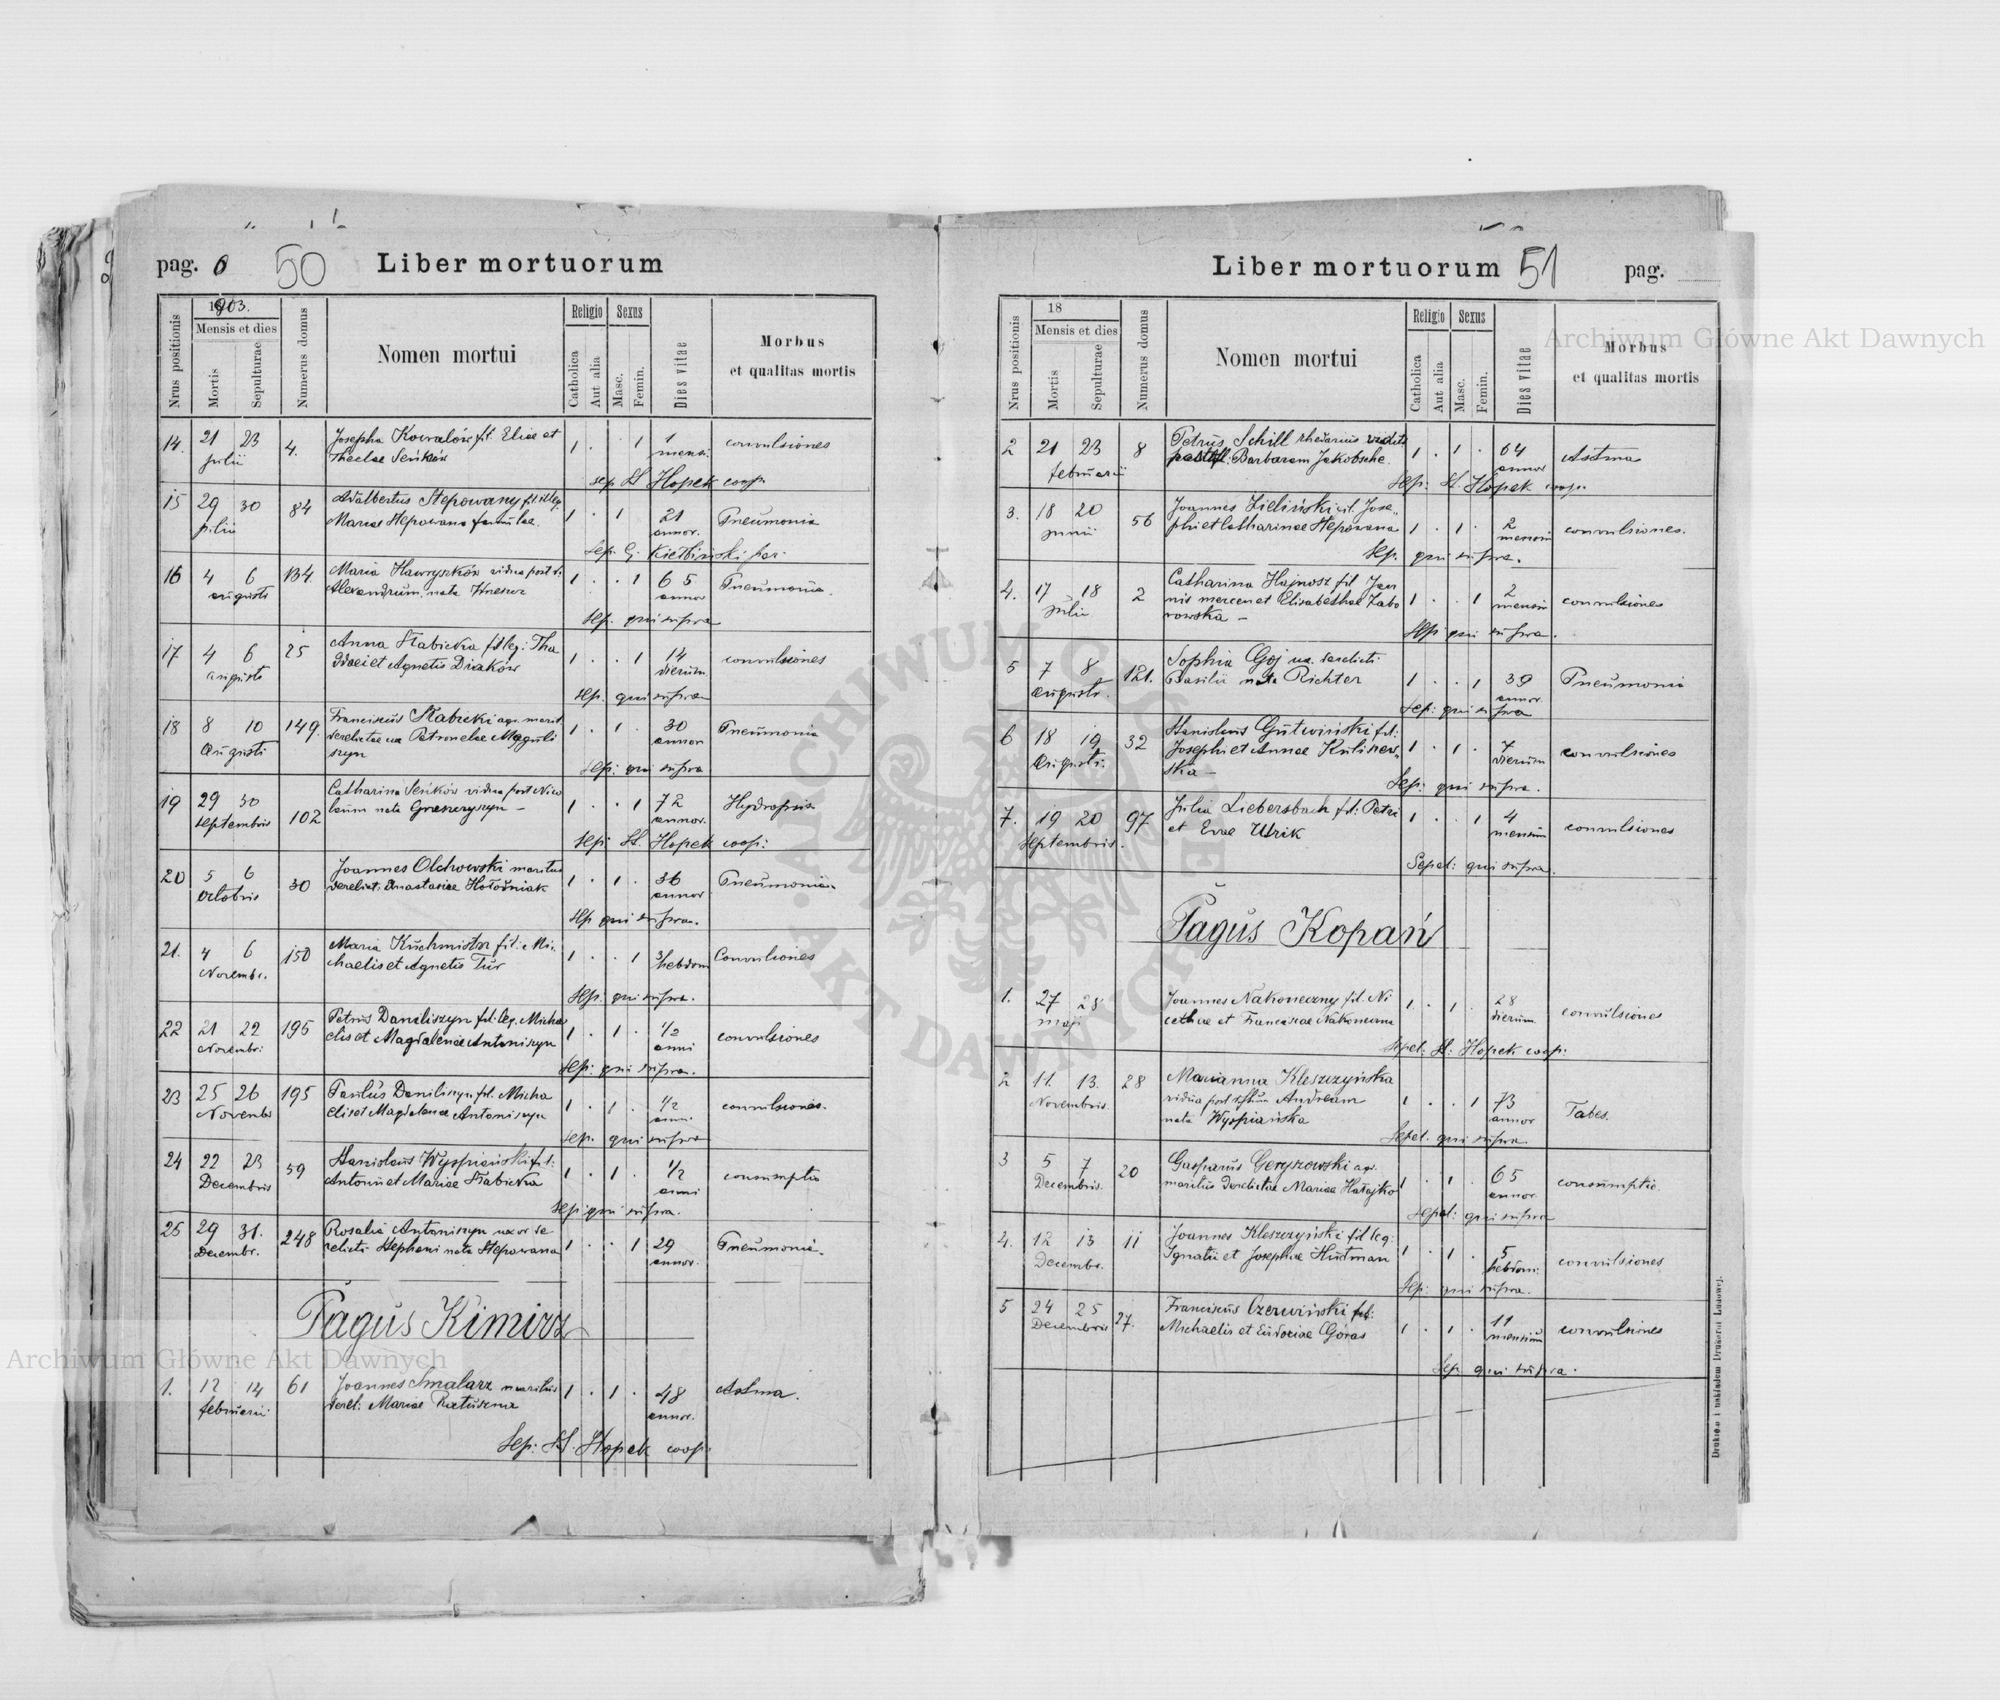 pag. 6 50 Liber mortuorum
Nrus positionis
1903.
Mensis et dies
Mortis
Sepulturae
Numerus domus
Nomen mortui
Religio
Catholica
Aut alia
Sexus
Masc.
Femin.
Dies vitae
Morbus
et qualitas mortis
14. 21 23 4. Josepha Kowalów fil. Eliae et 1 . . 1 1 convulsiones
julii Theclae Seńków mensi.
sep. St Hopek coop.
15 29 30 84 Adalbertus Stepowany fil illeg. 1 . 1 21 Pneumonia
julii Mariae Stepowana famulae. annor.
Sep. G. Kiełbiński par.
16 4 6 134. Maria Hawryszków vidua post d. 1 . . 1 65 Pneumonia.
augusti Alexandrum, nata annor
Sep. qui supra
17 4 6 25 Anna Słabicka fil leg: Tha 1 . . 1 14 convulsiones
augusti ddaei et Agnetis Diaków dierum
sep. qui supra
18 8 10 149. Franciscus Słabicki agr. marit 1 . 1 . 30 Pneumonia
Augusti derelictae ux Petronelae
szyn annor
Sep: qui supra
19 29 30 102 Catharina Seńków vidua post Nico 1 . . 1 72 Hydropsis
septembris laum nata Greszczyszyn – annor.
Sep: St. Hopek coop:
20 5 6 30 Joannes Olchowski maritus 1 . 1 . 36 Pneumonia.
octobris derelict. Anastasiae Hołodniak annor
Sep qui supra.
21. 4 6 150 Maria Kuchmistrz fil: Mi- 1 . . 1 3 hebdom Convulsiones
Novembr. chaelis et Agnetis Tur
Sep: qui supra.
22 21 22 195 Petrus Daniliszyn fil. leg. Micha 1 . 1 . 1/2 convulsiones
Novembr: elis et Magdalenae Antoniszyn anni
Sep: qui supra.
23 25 26 195 Paulus Daniliszyn fil. Micha 1 . 1 . 1/2 convulsiones.
Novembr elis et Magdalenae Antoniszyn anni
Sep. qui supra
24 22 23 59 Stanislaus Wyspiański fil: 1 . 1 . 1/2 consumptio
Decembris Antonii et Mariae Słabicka anni
Sep: qui supra.
25 29 31. 248 Rosalia Antoniszyn uxor de 1 . . 1 29 Pneumonia.
Decembr. relicti Stephani nata Stepowana annor.
Pagus Kimirz
1. 12 14 61 Joannes Smalarz maritus 1 . 1 . 48 Astma.
februarii derel: Mariae Ratuszna annor.
Sep: St. Hopek coop:
Liber mortuorum 51 pag.
Nrus positionis
18
Mensis et dies
Mortis
Sepulturae
Numerus domus
Nomen mortui
Religio
Catholica
Aut alia
Sexus
Masc.
Femin.
Dies vitae
Morbus
et qualitas mortis
2 21 23 8 Petrus Schill 1 . 1 . 64 Astma
februarii Barbaram Jakobsche annor
Sep: St. Hopek coop:
3. 18 20 56 Joannes Zieliński fil. Jose- 1 . 1 . 2 convulsiones.
junii phi et Catharinae Stepowana mensium
Sep. qui supra.
4. 17 18 2 Catharina Hajnosz fil Joan 1 . . 1 2 convulsiones
julii nis mercen et Elisabethae Zabo mensium
rowska –
Sep qui supra.
5 7 8 121. Sophia Goj ux. derelicti 1 . . 1 39 Pneumonia
Augusti. Basilii nata Richter annor.
Sep: qui supra
6 18 19 32 Stanislaus Gutwiński fil: 1 . 1 . 7 convulsiones
Augusti. Josephi et Annae Kuliszew- dierum
ska –
Sep: qui supra.
7. 19 20 97 Julia Liebersbach fil: Petri 1 . . 1 4 convulsiones
septembris. et Evae Ulrik mensium
Sepel: qui supra.
Pagus Kopań
1. 27 28 Joannes Nakoneczny fil. Ni 1 . 1 . 28 convulsiones
maji cethae et Franciscae Nakoneczna dierum
Sepel: St: Hopek coop:
2 11. 13. 28 Marianna Kleszczyńska 1 . . 1 73 Tabes.
Novembris. vidua post Andream annor
nata Wyspiańska
Sepel. qui supra
3 5 7 20 Gasparus Geryszowski agr. 1 . 1 . 65 consumptio.
Decembris. maritus derelictae Mariae Hałajko annor.
Sepel: qui supra
4. 12 13 11 Joannes Kleszczyński fil leg: 1 . 1 . 5 convulsiones
Decembr. Ignatii et Josephae Hutman hebdom:
Sep: qui supra.
5 24 25 27. Franciscus Czerwiński fil: 1 . 1 . 11 convulsiones
Decembris Michaelis et Eudociae Góras mensium
Sep. qui supra.
Drukiem i nakładem Drukarni Ludowej.
Archiwum Główne Akt Dawnych
Archiwum Główne Akt Dawnych
ARCHIWUM GŁÓWNE AKT DAWNYCH